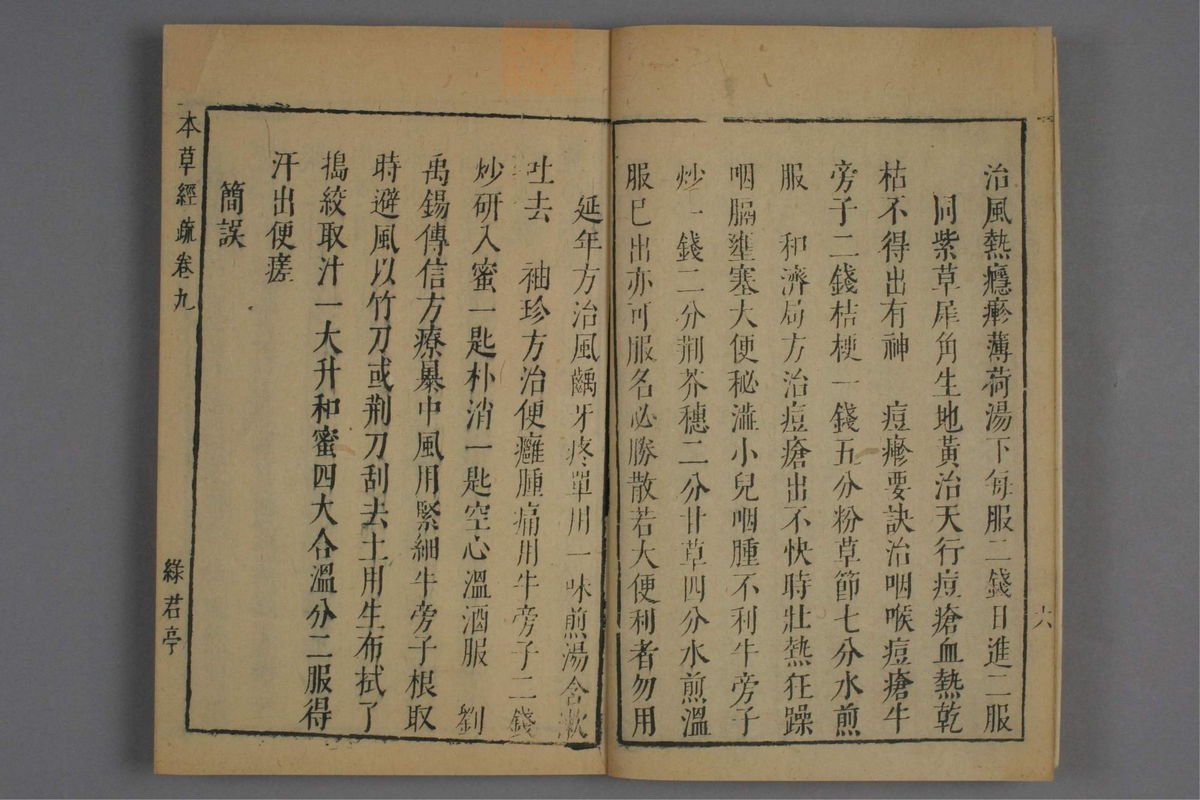 治風熱癮㾦薄荷湯下每服二錢日進二服
同紫草犀角生地黃治天行痘瘡血熱乾
枯不得出有神　痘㾦要訣治咽喉痘瘡牛
旁子二錢桔梗一錢五分粉草節七分水煎
服　和濟局方治痘瘡出不快時壯熱狂躁
咽膈壅塞大便秘澁小兒咽腫不利牛旁子
炒一錢二分荆芥穗二分甘草四分水煎溫
服已出亦可服名必勝散若大便利者勿用
六
延年方治風齲牙疼單用一味煎湯含漱
吐去　袖珍方治便癰腫痛用牛旁子二錢
炒研入蜜一匙朴消一匙空心溫酒服　劉
禹錫傳信方療暴中風用緊細牛旁子根取
時避風以竹刀或荆刀刮去土用生布拭了
搗絞取汁一大升和蜜四大合溫分二服得
汗出便瘥
簡誤
本草經疏卷九
綠君亭